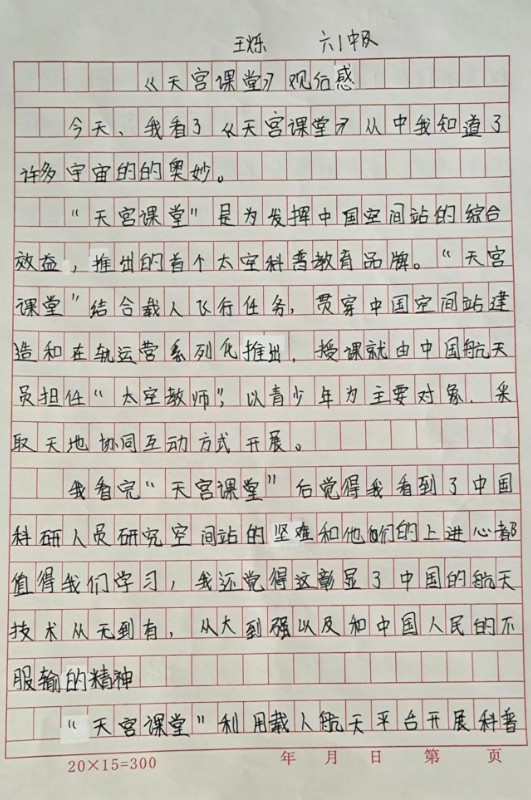 王烁 六1中队
《天宫课堂》观后感
今天、我看了《天宫课堂》从中我知道了
许多宇宙的的奥妙。
“天宫课堂”是为发挥中国空间站的综合
效益,推出的首个太空科普教育品牌。“天宫
课堂”结合载人飞行任务,贯穿中国空间站建
造和在轨运营系列化推出.授课就由中国航天
员担任“太空教师”,以青少年为主要对象.采
取天地协同互动方式开展。
我看完“天宫课堂”后觉得我看到了中国
科研人员研究空间站的坚难和他们的上进心都
值得我们学习,我还觉得这彰显了中国的航天
技术从无到有,从大到强以及和中国人民的不
服输的精神
“天宫课堂”利用载人航天平台开展科普
20×15=300 年 月 日 第 页